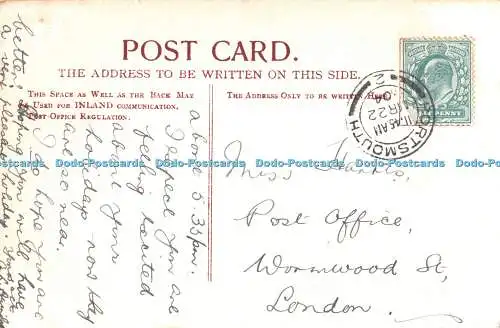 POST CARD.
THE ADDRESS TO BE WRITTEN ON THIS SIDE.
THIS SPACE AS WELL AS THE BACK MAY
BE USED FOR INLAND COMMUNICATION.
POST OFFICE REGULATION.
THE ADDRESS ONLY TO BE WRITTEN HERE
above 5.35pm.
I expect you are
feeling excited
about your
holidays now they
are so near.
I do hope you are
better & hoping you will have
a very pleasant holiday.
Miss
Post Office,
Wormwood St,
London.
PORTSMOUTH
11.45AM
MR 22
HALFPENNY
Dodo-Postcards Dodo-Postcards Dodo-Postcards Dodo-Postcards Dodo-Postcards